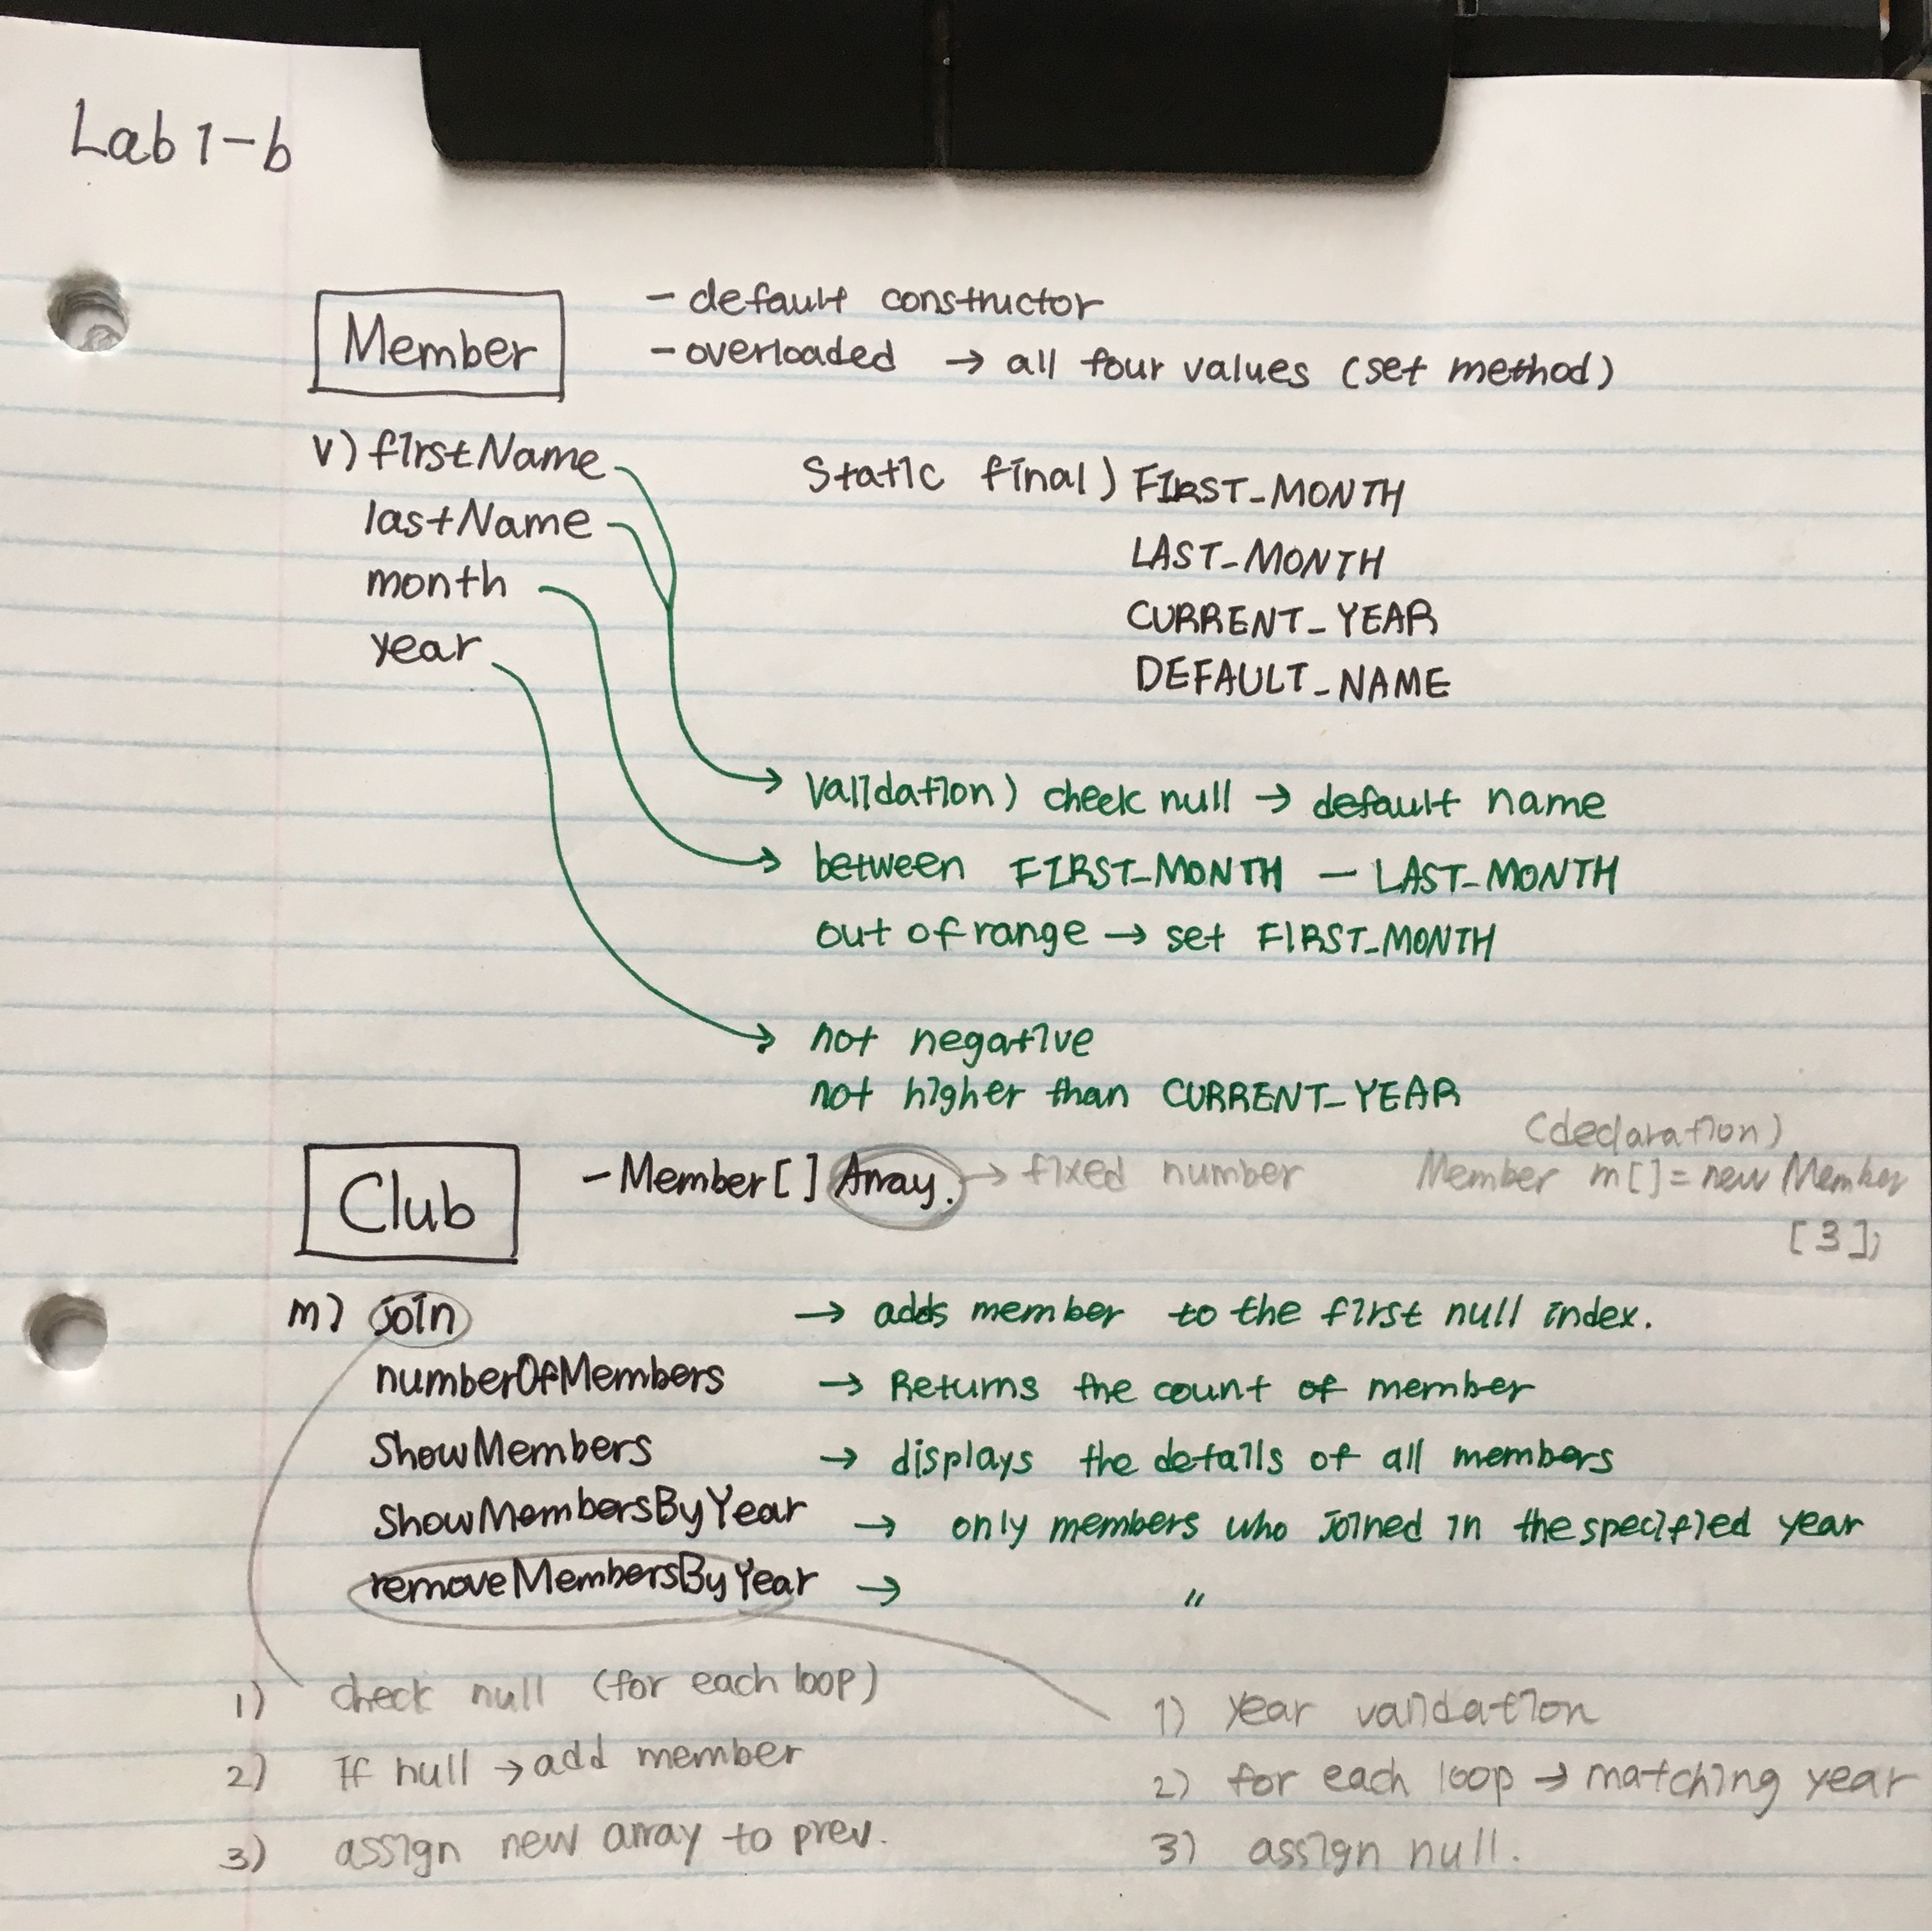 Lab 1-b
Member
- default constructor
- overloaded → all four values (set method)
v) firstName
lastName
month
year
Static final) FIRST_MONTH
LAST_MONTH
CURRENT_YEAR
DEFAULT_NAME
Validation) check null → default name
between FIRST_MONTH - LAST_MONTH
out of range → set FIRST_MONTH
not negative
not higher than CURRENT_YEAR
Club
- Member[] Array. → fixed number
(declaration)
Member m[] = new Member
[3];
m) join → adds member to the first null index.
numberOfMembers → Returns the count of member
ShowMembers → displays the details of all members
ShowMembersByYear → only members who joined in the specified year
removeMembersByYear → "
1) check null (for each loop)
2) If null → add member
3) assign new array to prev.
1) year validation
2) for each loop → matching year
3) assign null.